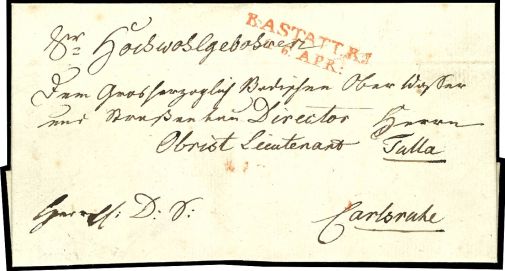 RASTATT.R.1
6 APR:
Sr Hochwohlgebohren
Dem Grosherzoglich Badischen Ober Wasser
und Straßen bau Director Herrn
Obrist Lieutenant Tulla
D: S:
Carlsruhe